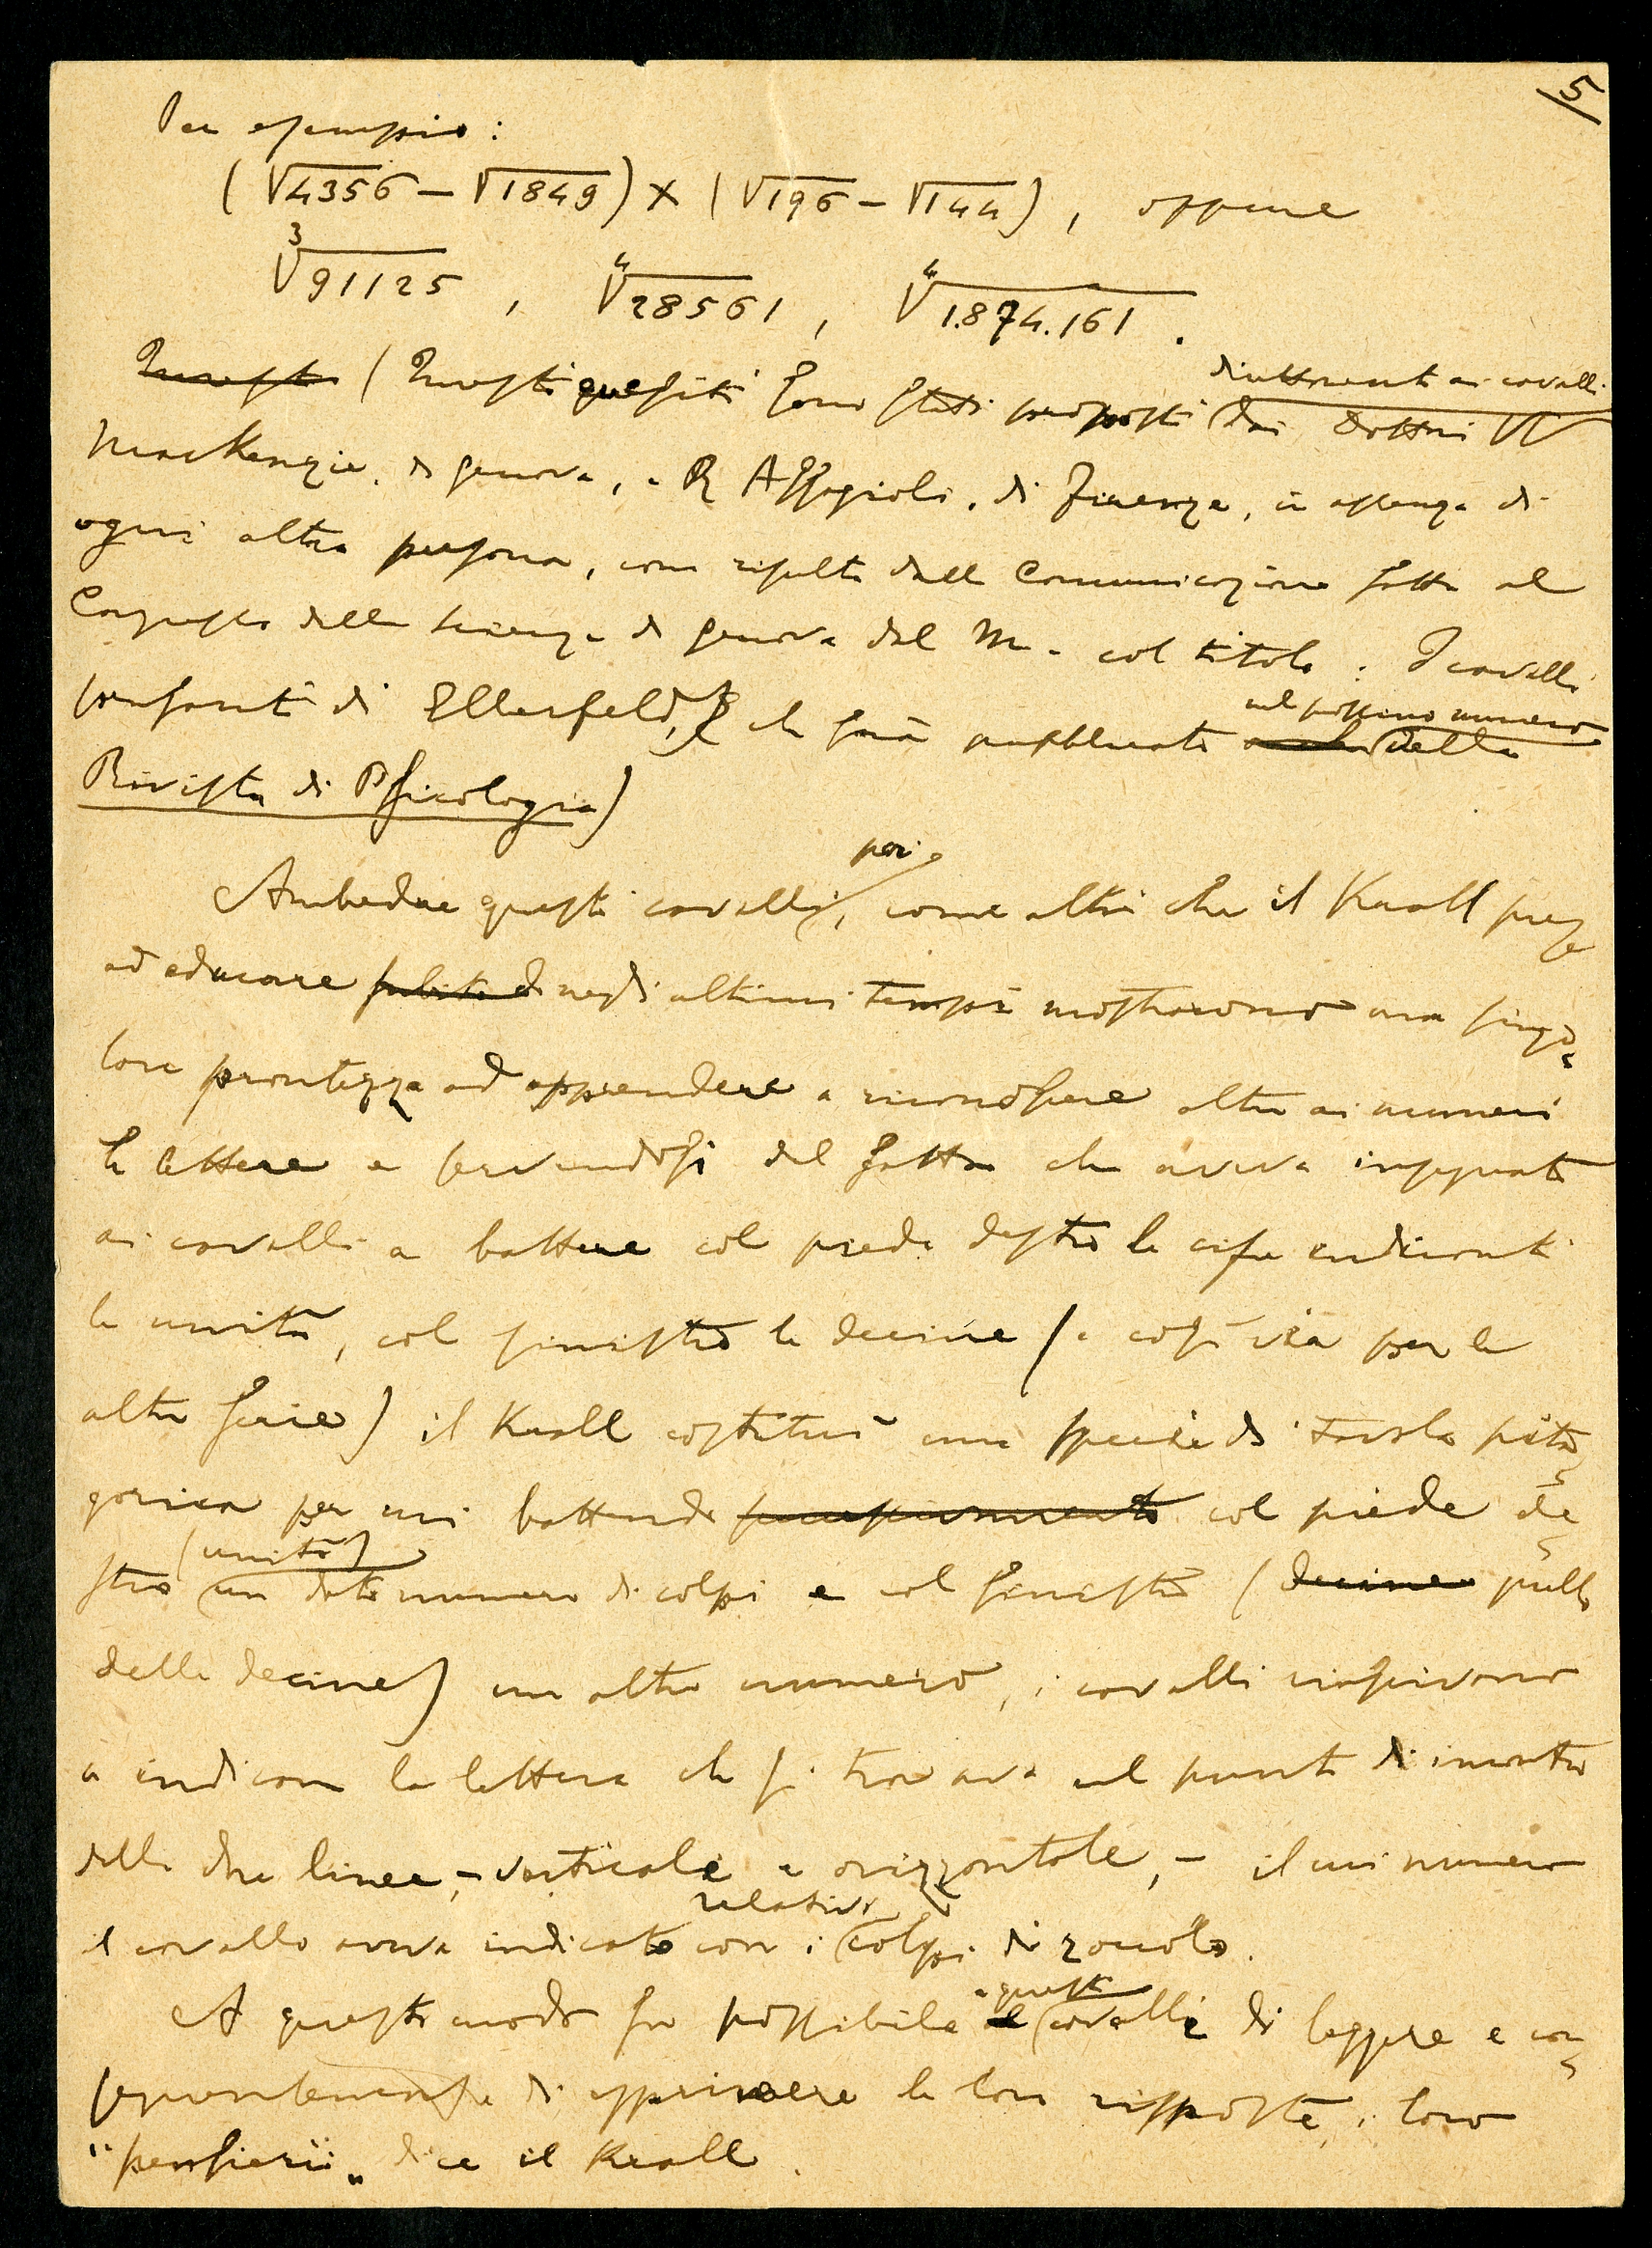 5
Per esempio:
(√4356 – √1849) × (√196 – √144), oppure
∛91125, ∜28561, ∜1.874.161.
direttamente ai cavalli
Queste (Questi quesiti sono stati proposti dai Dottori W
Mackenzie, di Genova, e R Assagioli, di Firenze, in assenza di
ogni altra persona, come risulta dalla Comunicazione fatta al
Congresso delle Scienze di Genova dal M. col titolo: I cavalli
nel prossimo numero
pensanti di Elberfeld, e che sarà pubblicata della
Rivista di Psicologia)
poi
Ambedue questi cavalli, come altri che il Krall prese
ad educare subito di negli ultimi tempi mostrarono una singo-
lare prontezza ad apprendere a riconoscere oltre ai numeri
le lettere e servendosi del fatto che aveva insegnato
ai cavalli a battere col piede destro le cifre indicanti
le unità, col sinistro le decine (e così via per le
altre serie) il Krall costituì una specie di tavola pita-
gorica per cui battendo col piede de-
(unità)
stro un dato numero di colpi e col sinistro (decine quello
delle decine) un altro numero, i cavalli riuscivano
a indicare la lettera che si trovava nel punto di incontro
delle due linee, – verticale e orizzontale, – il cui numero
relativi
il cavallo aveva indicato con i colpi di zoccolo.
a questi
A questo modo fu possibile al cavalli di leggere e con-
seguentemente di esprimere le loro risposte, i loro
"pensieri" dice il Krall.